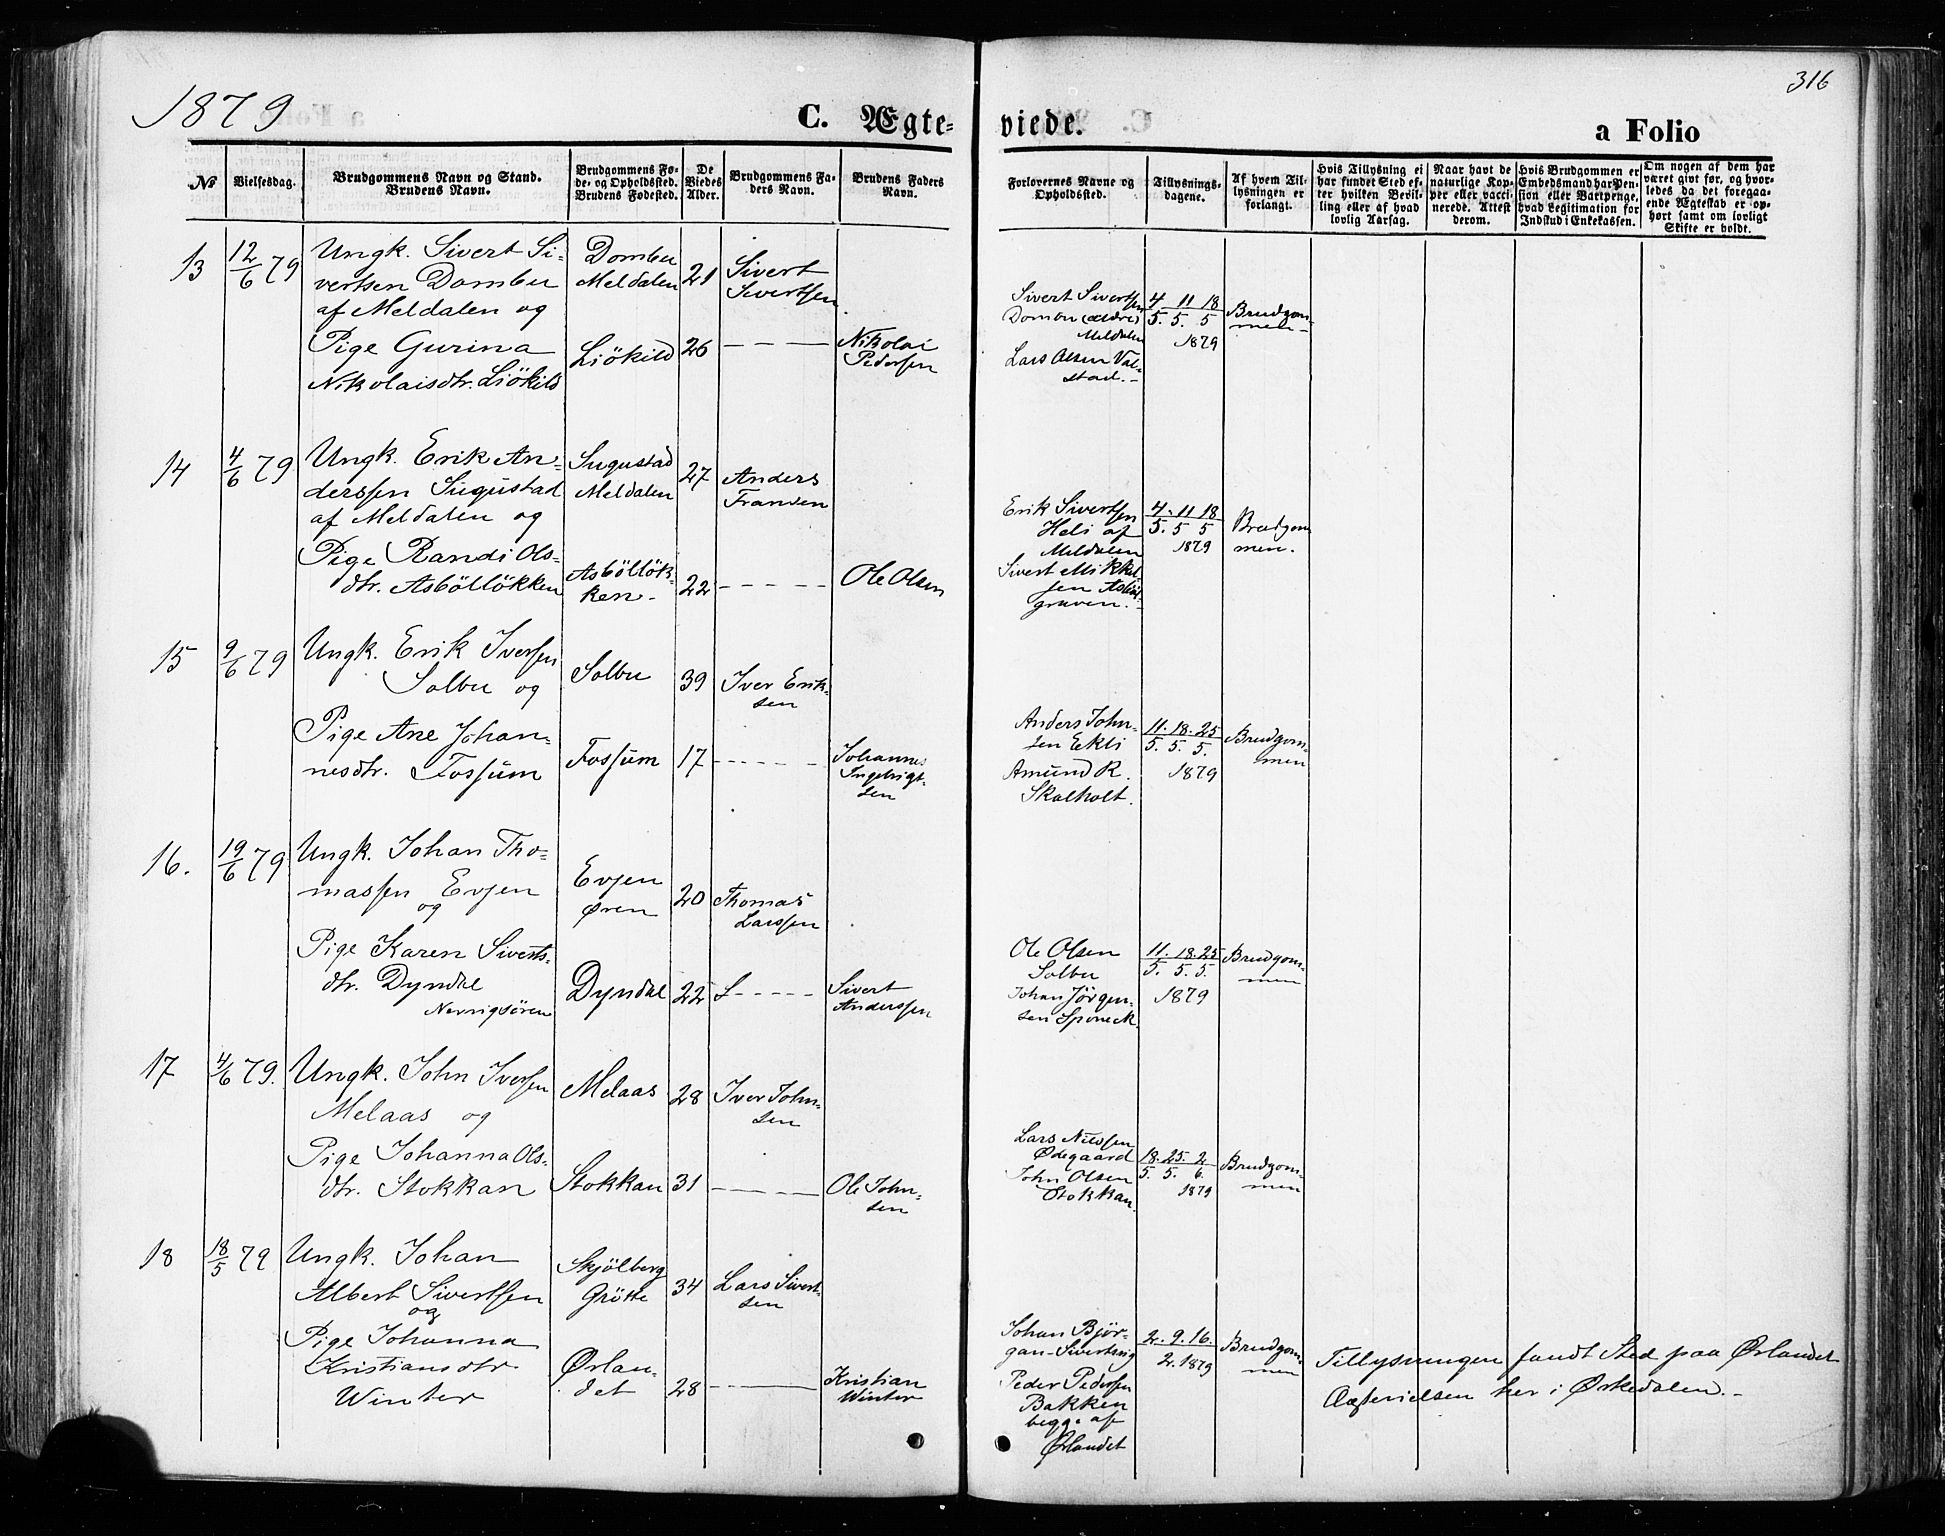 1879
C. Ægte-
viede.
a Folio
316
No
Vielsesdag.
Brudgommens Navn og Stand.
Brudens Navn.
Brudgommens Fø-
de- og Opholdssted.
Brudens Fødested.
De
Viedes
Alder.
Brudgommens Fa-
ders Navn.
Brudens Faders
Navn.
Forlovernes Navne og
Opholdssted.
Tillysnings-
dagene.
Af hvem Til-
lysningen er
forlangt.
Hvis Tillysning ei
har fundet Sted ef-
ter hvilken Bevil-
ling eller af hvad
lovlig Aarsag.
Naar havt de
naturlige Kop-
per eller vacci-
nerede. Attest
derom.
Hvis Brudgommen er
Embedsmand har Pen-
sion eller Vartpenge,
hvad Legitimation for
Indskud i Enkekassen.
Om nogen af dem har
været givt før, og hvor-
ledes da det foregaa-
ende Ægteskab er op-
hørt samt om lovligt
Skifte er holdt.
13
12/6 79
Ungk. Sivert Si-
vertsen Dombu
af Meldalen og
Pige Gurina
Nikolaisdtr. Liökild
Dombu
Meldalen
Liökild
21
26
Sivert
Sivertsen
Nikolai
Pedersen
Sivert Sivertsen
Dombu (ældre)
Meldalen
Lars Olsen Val-
stad.-
4 11 18
5. 5. 5
1879
Brudgom-
men-
14
4/6 79
Ungk. Erik An-
derssen Sugustad
af Meldalen og
Pige Randi Ols-
dtr. Asböllökken
Sugustad
Meldalen
Asböllök-
ken-
27
22
Anders
Fransen
Ole Olsen
Erik Sivertsen
Heli af
Meldalen
Sivert Mikkel-
sen
graven.
4. 11 18
5. 5 5
1879
Brudgom
men.
15
9/6 79
Ungk. Erik Iversen
Solbu og
Pige Ane Johan-
nesdtr. Fossum
Solbu
Fossum
39
17
Iver Erik-
sen
Johannes
Ingebrigt-
sen
Anders John-
sen Ekli
Amund R.
Skalholt.
11. 18. 25
5. 5. 5.
1879
Brudgom-
men
16.
19/6 79
Ungk. Johan Tho-
massen Evjen
og
Pige Karen Siverts-
dtr. Dyndal
Nervigsören
Evjen
Øren
Dyndal
20
22
Thomas
Larssen
Sivert
Anderssen
Ole Olsen
Solbu
Johan Jörgen-
sen Sponeck.
11. 18. 25
5. 5. 5.
1879
Brudgom-
men
17
4/6 79.
Ungk. John Iversen
Melaas og
Pige Johanna Ols-
dtr. Stokkan
Melaas
Stokkan
28
31
Iver John-
sen
Ole John-
sen
Lars Nilssen
Ødegaard
John Olsen
Stokkan.
18. 25. 2
5. 5. 6.
1879
Brudgom-
men
18
18/5 79
Ungk. Johan
Albert Sivertsen
og
Pige Johanna
Kristiansdtr.
Winter
Skjölberg
Grötte
Ørlan-
det
34
28
Lars Sivert-
sen
Kristian
Winter
Johan Bjør-
gan-
Peder Pedersen
Bakken
begge af
Ørlandet
2. 9. 16.
2. 1879
Brudgom-
men
Tillysningen fandt Sted paa Ørlandet
Ægtevielsen her i Ørkedalen.-